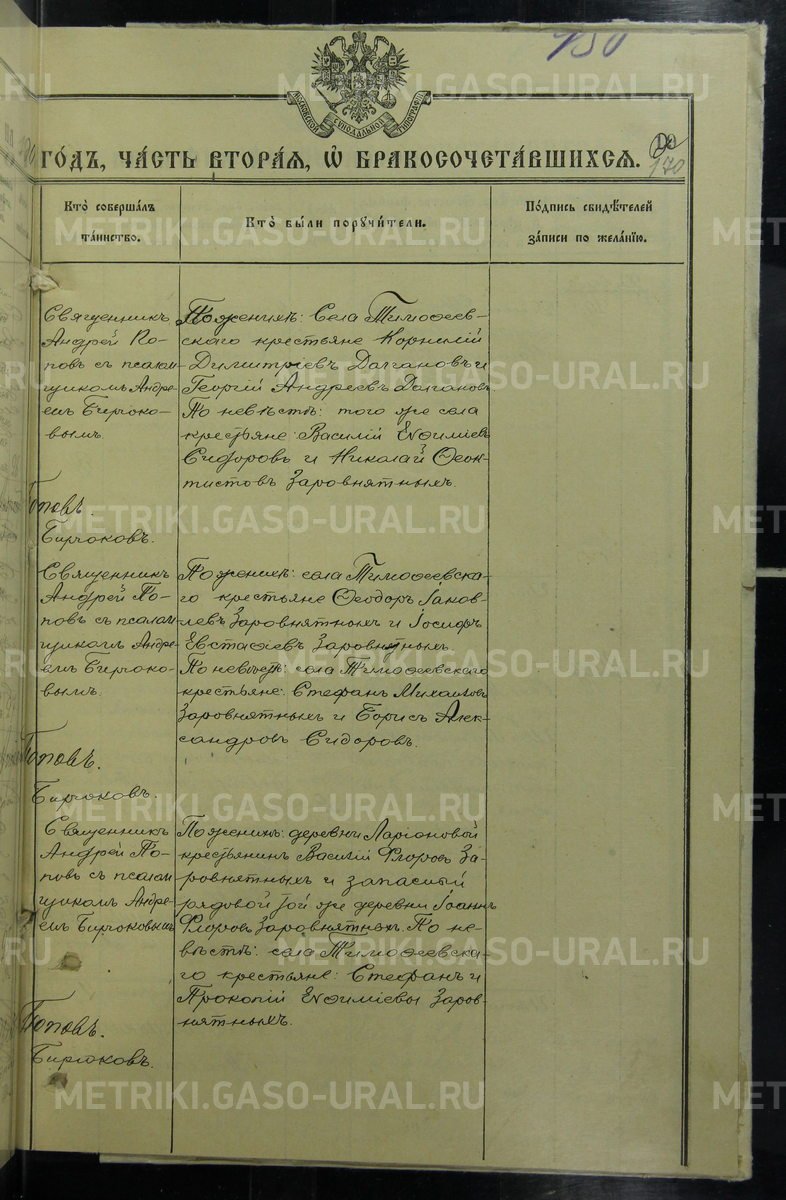 130
МОСКОВСКОЙ СѴНОДАЛЬНОЙ ТИПОГРАФІИ
го́дъ, ча́сть втора́я, ѡ҆ бракосочета́вшихся.
170
Кто̀ соверша́лъ
та́инство.
Кто̀ бы́ли поручи́тели.
По́дпись свидѣ́телей
за́писи по жела́нїю.
Священникъ
Андрей По-
повъ съ псалом-
щикомъ Андре-
емъ Бирюко-
вымъ.
Поповъ.
Бирюковъ.
По женихѣ: Села Тимофеев-
скаго крестьяне Корнилій
Димитріевъ Долгановъ и
Георгій Андреевъ Долгановъ
По невѣстѣ: того же села
крестьяне: Василій Евѳиміевъ
Сидоровъ и Николай Ѳеок-
тистовъ Заровнятныхъ.
Священникъ
Андрей По-
повъ съ псалом-
щикомъ Андре-
емъ Бирюко-
вымъ.
Поповъ.
Бирюковъ.
По женихѣ: села Тимофеевска-
го крестьяне Ѳеодоръ Іаков-
левъ Заровнятныхъ и Іосифъ
Евстафіевъ Заровнятныхъ.
По невѣстѣ: села Тимофеевскаго
крестьяне: Стефанъ Михаиловъ
Заровнятныхъ и Борисъ Алек-
сандровъ Сидоровъ.
Священникъ
Андрей По-
повъ съ псалом-
щикомъ Андре-
емъ Бирюковымъ
Поповъ.
Бирюковъ.
По женихѣ: деревни Ларіоновой
крестьянинъ Василій Флоровъ За-
ровнятныхъ и запасный
рядовой той же деревни Іоаннъ
Флоровъ Заровнятныхъ. По не-
вѣстѣ: села Тимофеевска-
го крестьяне: Стефанъ и
Прокопій Евѳиміевы Заров-
нятныхъ.
METRIKI.GASO-URAL.RU